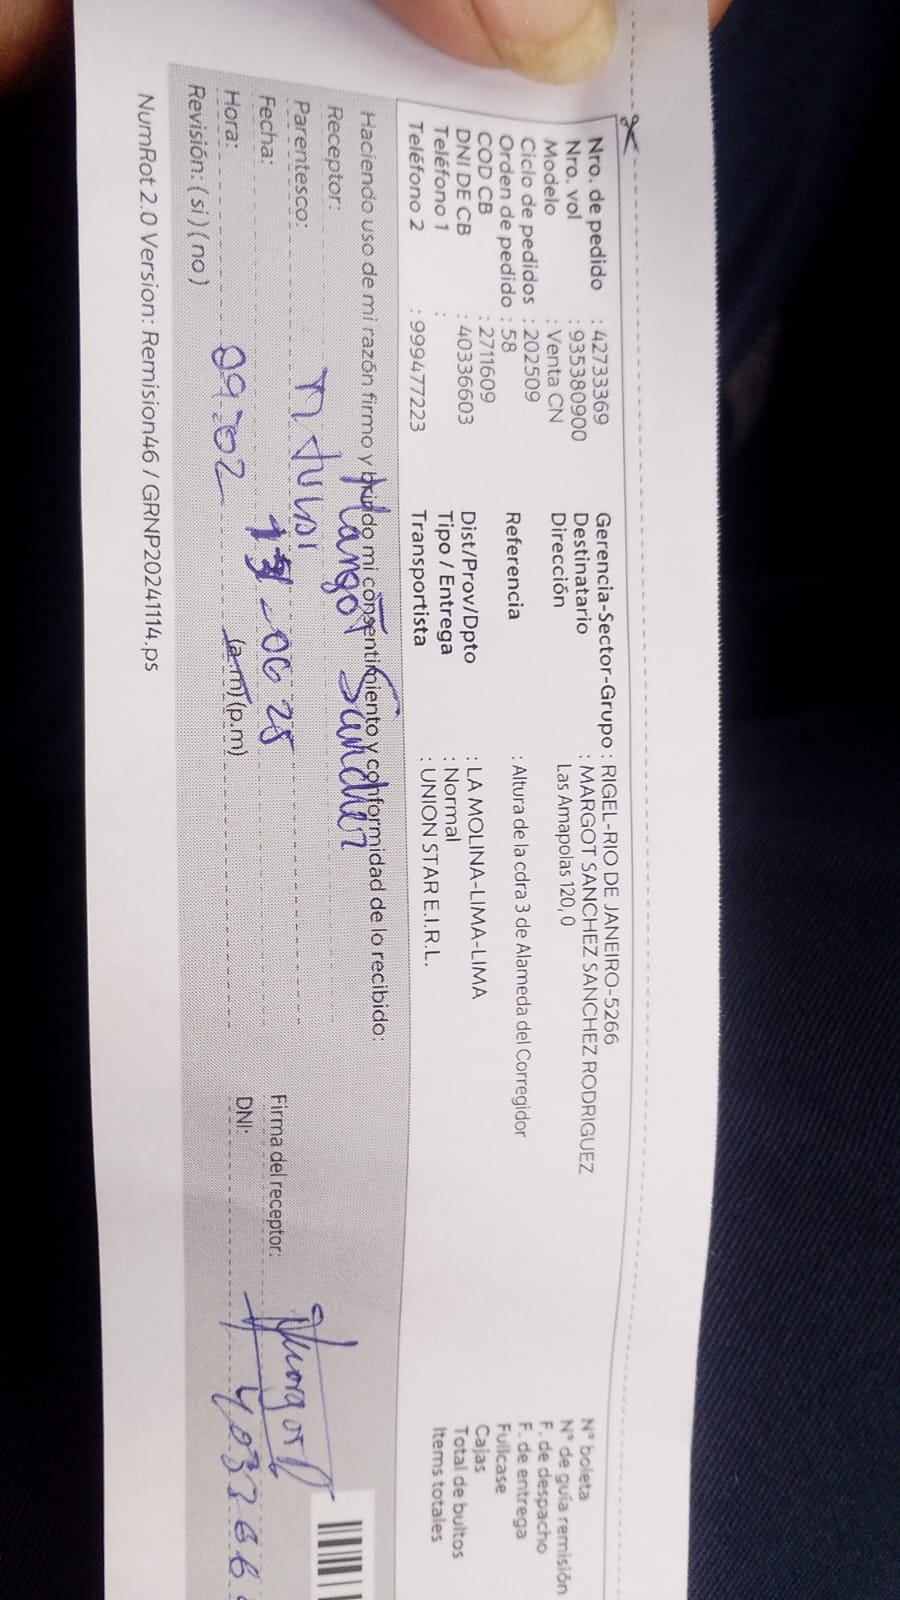 Nro. de pedido : 42733369
Nro. vol : 935380900
Modelo : Venta CN
Ciclo de pedidos : 202509
Orden de pedido : 58
COD CB : 2711609
DNI DE CB : 40336603
Teléfono 1 :
Teléfono 2 : 999477223
Gerencia-Sector-Grupo : RIGEL-RIO DE JANEIRO-5266
Destinatario : MARGOT SANCHEZ SANCHEZ RODRIGUEZ
Dirección Las Amapolas 120,0
Referencia : Altura de la cdra 3 de Alameda del Corregidor
Dist/Prov/Dpto : LA MOLINA-LIMA-LIMA
Tipo / Entrega : Normal
Transportista : UNION STAR E.I.R.L.
N° boleta
N° de guía remisión
F. de despacho
F. de entrega
Fullcase
Cajas
Total de bultos
Items totales
Haciendo uso de mi razón firmo y brindo mi consentimiento y conformidad de lo recibido:
Receptor: Margot Sanchez
Parentesco:
Fecha: -06 25
Hora: 09:02 (a.m) (p.m)
Revisión: ( si ) ( no )
Firma del receptor: Margot
DNI:
NumRot 2.0 Version: Remision46 / GRNP20241114.ps